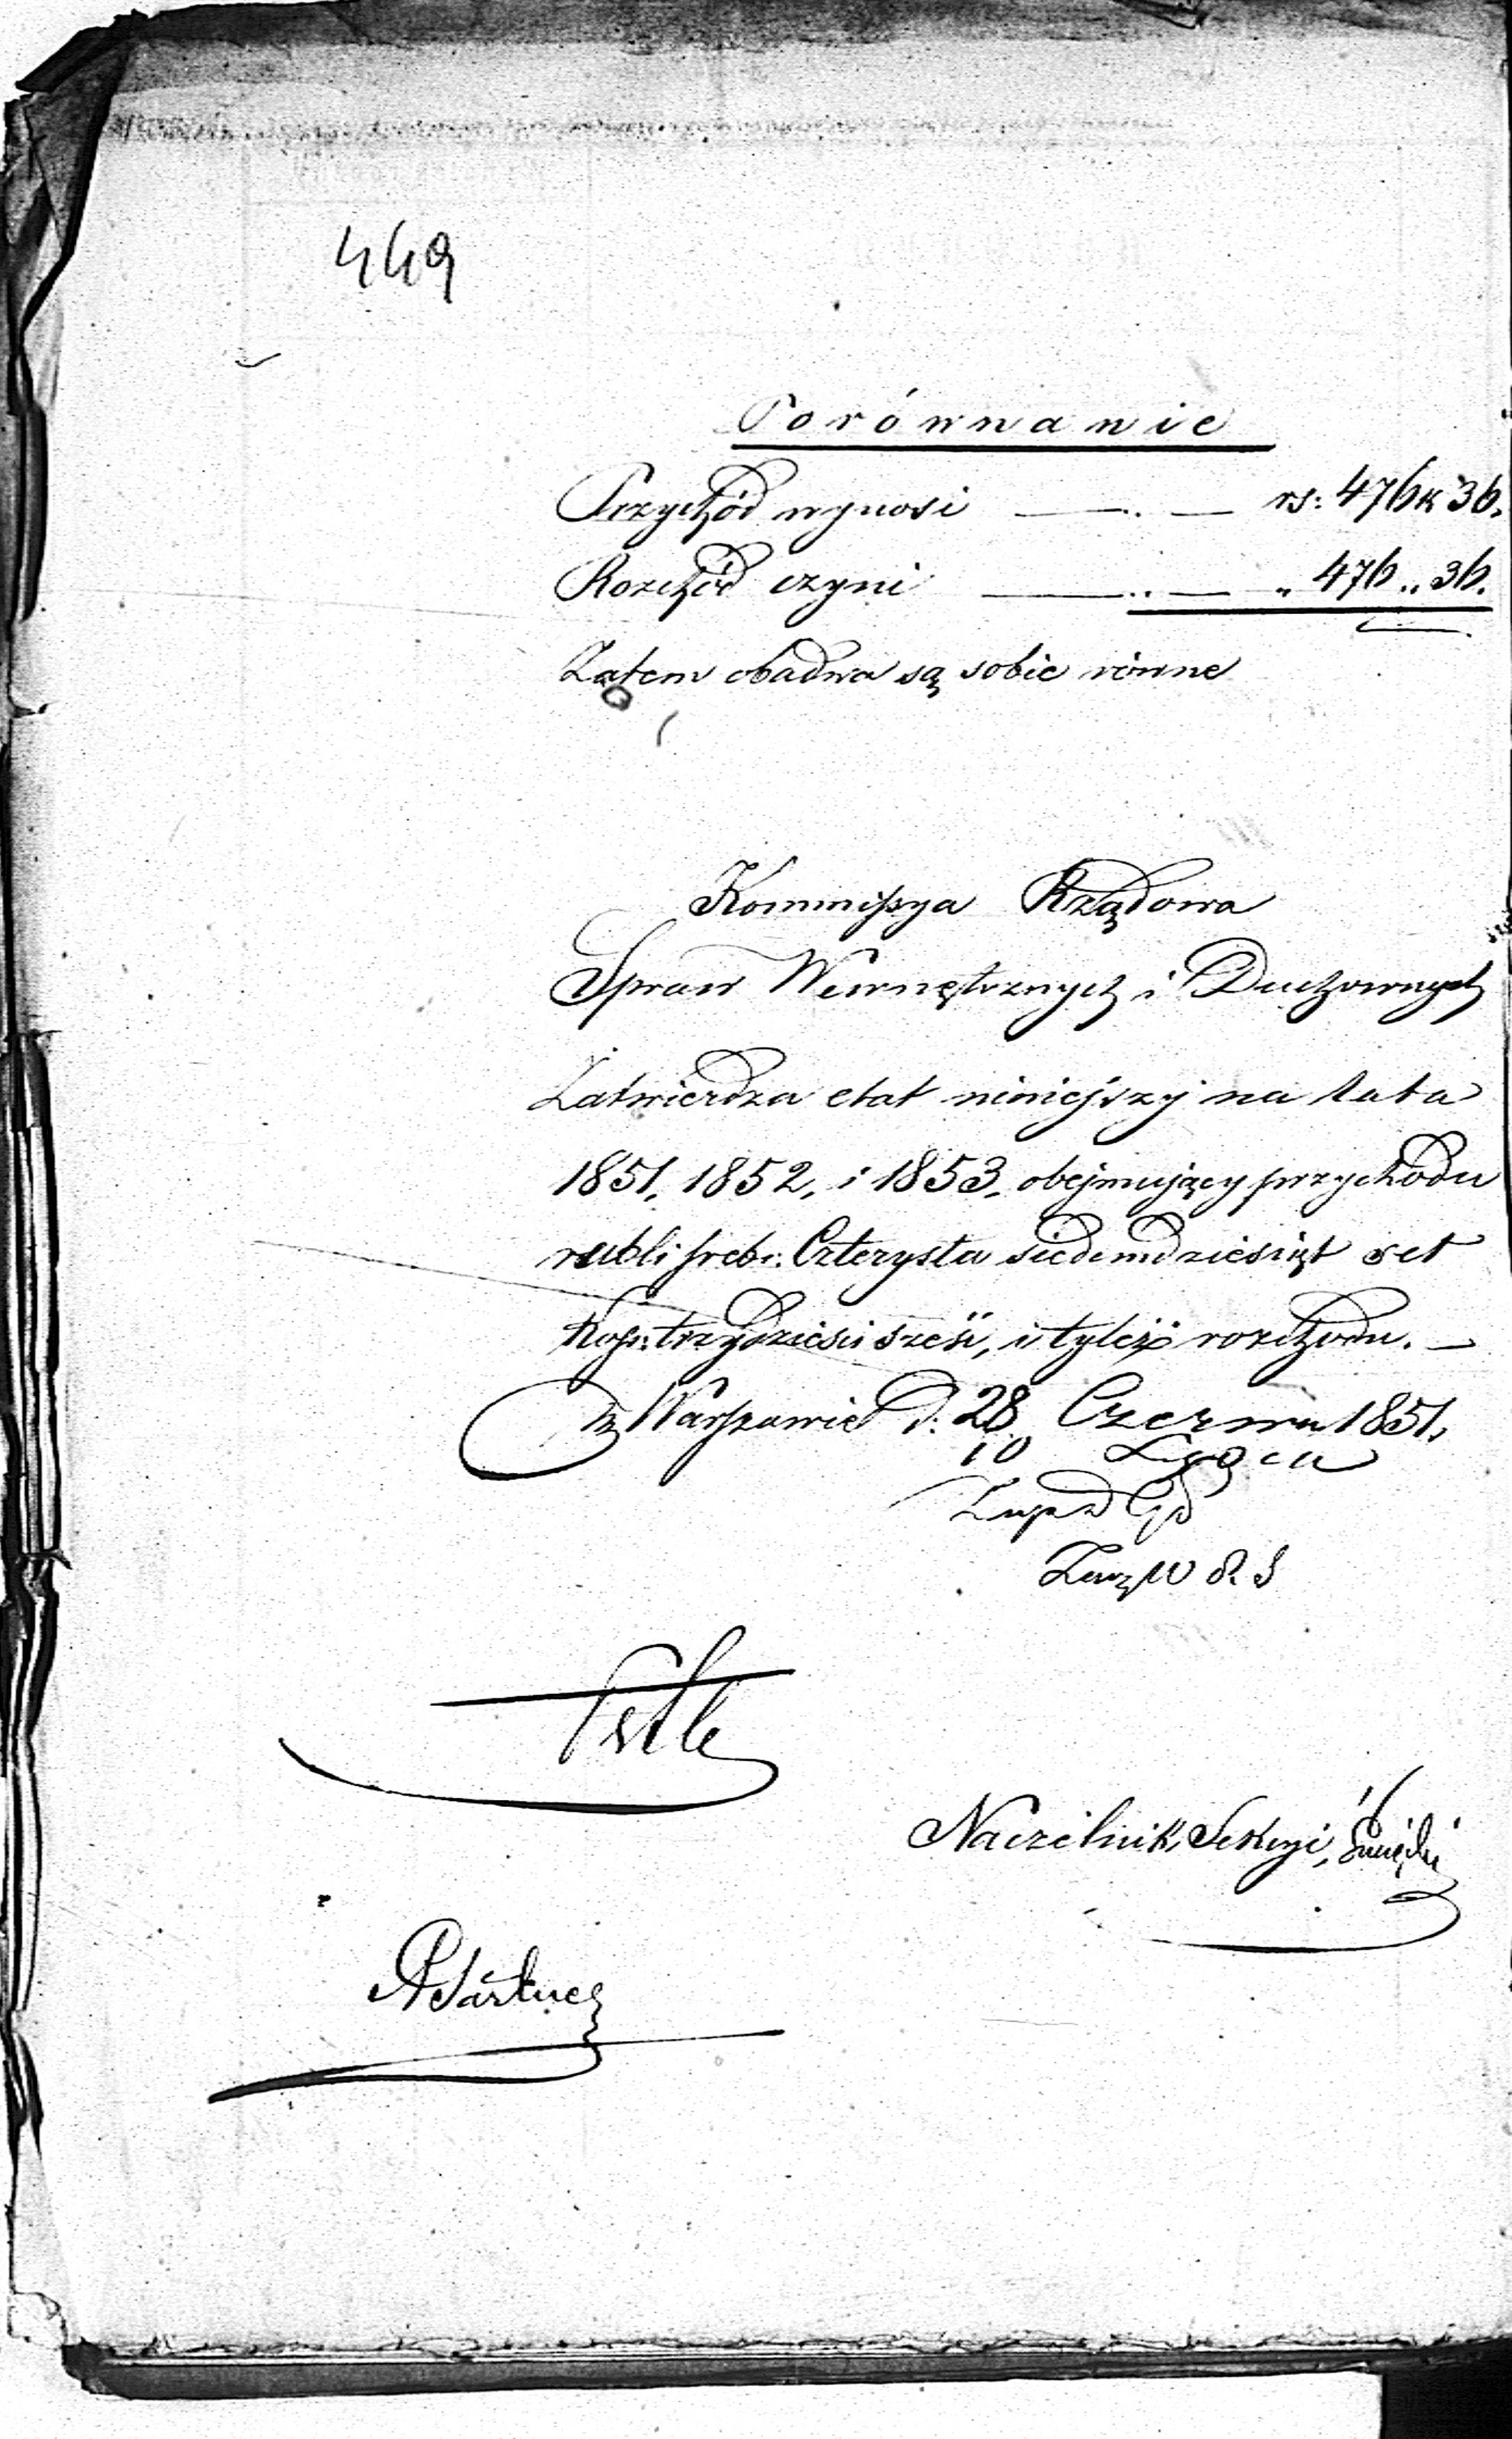 449
Porównanie
Przychód wynosi — .. — rs: 476 k 36.
Rozchód czyni — .. — „ 476 „ 36.
Zatem obadwa są sobie równe
Kommissya Rządowa
Spraw Wewnętrznych i Duchownych
Zatwierdza etat niniejszy na lata
1851, 1852, i 1853, obejmujący przychodu
rubli sreb: Czterysta siedemdziesiąt
Kop: trzydzieści sześć, i tyleż rozchodu. —
w Warszawie d: 28 Czerwca 1851.
10 Lipca
Naczelnik Sekcyi,